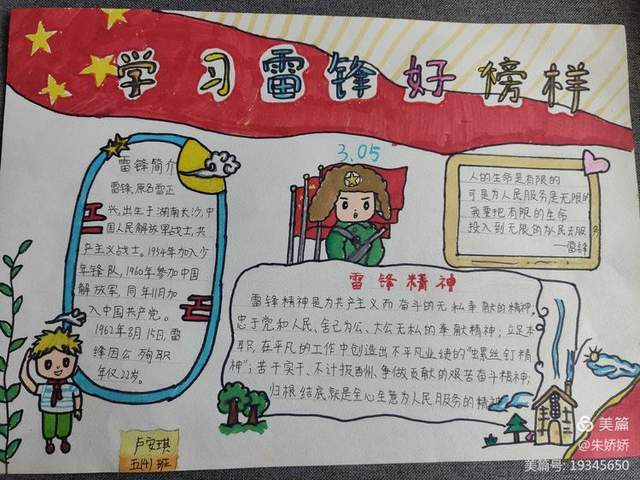 学习雷锋好榜样
3.05
雷锋简介
雷锋,原名雷正
兴,出生于湖南长沙,中
国人民解放军战士,共
产主义战士。1954年加入少
年锋队,1960年参加中国
解放军,同年11月加
入中国共产党。
1962年8月15日,雷
锋因公殉职
年仅22岁。
人的生命是有限的
可是为人民服务是无限的
我要把有限的生命
投入到无限的为民去服务
——雷锋
雷锋精神
雷锋精神是为共产主义而奋斗的无私奉献的精神,
忠于党和人民、舍己为公、大公无私的奉献精神;立足本
职、在平凡的工作中创造出不平凡业绩的“螺丝钉精
神”;苦干实干、不计报酬、争做贡献的艰苦奋斗精神;
归根结底就是全心全意为人民服务的精神
卢安琪
五(4)班
美篇
@朱娇娇
美篇号:19345650